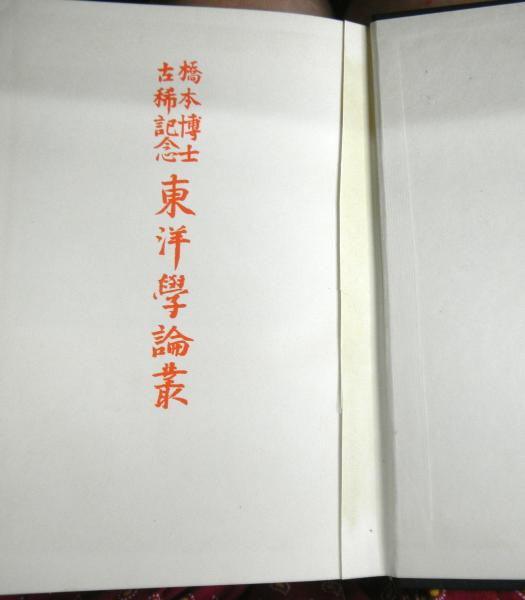 橋本博士
古稀記念
東洋學論叢